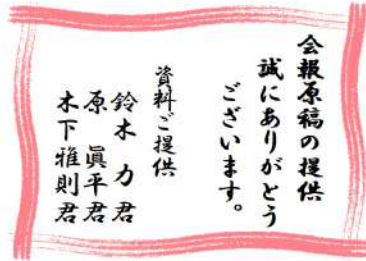 会報原稿の提供
誠にありがとう
ございます。
資料ご提供
鈴木力君
原眞平君
木下雅則君